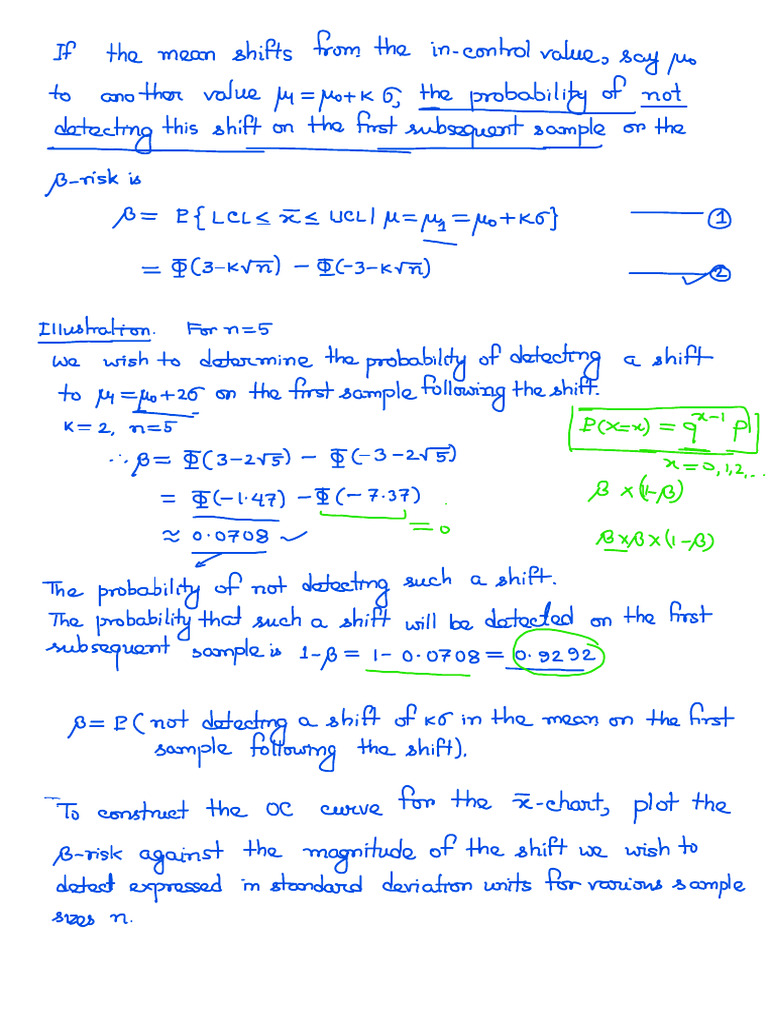 If the mean shifts from the in-control value, say μ₀
to another value μ₁ = μ₀ + K σ, the probability of not
detecting this shift on the first subsequent sample or the
β-risk is
β = P{ LCL ≤ x̄ ≤ UCL | μ = μ₁ = μ₀ + Kσ} ——— ①
= Φ(3 - K√n) - Φ(-3 - K√n) ——— ②
Illustration. For n = 5
We wish to determine the probability of detecting a shift
to μ₁ = μ₀ + 2σ on the first sample following the shift.
K = 2, n = 5
P(X=x) = q^(x-1) p
x = 0, 1, 2, ...
∴ β = Φ(3 - 2√5) - Φ(-3 - 2√5)
= Φ(-1.47) - Φ(-7.37)
= 0
β × (1-β)
≈ 0.0708 ✓
β × β × (1 - β)
The probability of not detecting such a shift.
The probability that such a shift will be detected on the first
subsequent sample is 1-β = 1 - 0.0708 = 0.9292
β = P( not detecting a shift of Kσ in the mean on the first
sample following the shift).
To construct the OC curve for the x̄-chart, plot the
β-risk against the magnitude of the shift we wish to
detect expressed in standard deviation units for various sample
sizes n.